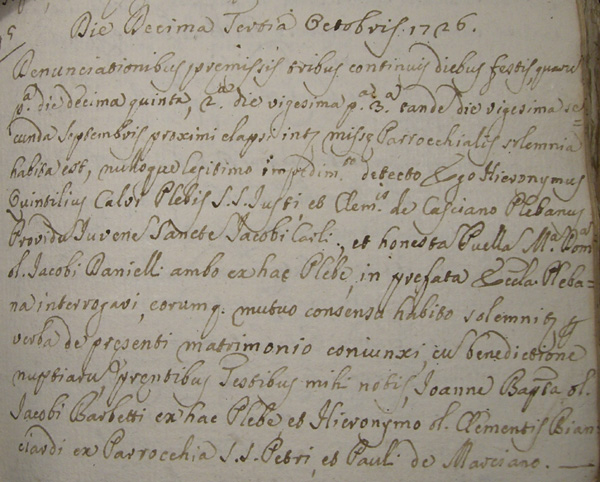 Die Decima Tertia Octobris 1726.
Denunciationibus premissis tribus continuis diebus festis, quaru
pa. die decima quinta, 2.da die vigesima pa. 3.a tande die vigesima se=
cunda Septembris proximi elapsi intr missar Parrocchialis solemnia
habita est, nulloque legitimo impedim.to detecto Ego Hieronymus
Quintilius Calvi Plebis S.S. Justi, et Clem.is de Casciano Plebanus
Providu Juvene Sancte Jacobi Carli, et honesta Puella Ma. Dom.a
ol. Jacobi Danielli ambo ex hac Plebe, in prefata Eccla Pleba=
na interrogavi, eorumq. mutuo consensu habito solemnitr p
verba de presenti matrimonio coniunxi cu benedictione
nuptiaru, prentibus Testibus mihi notis, Joanne Bapta ol.
Jacobi Barbetti ex hac Plebe et Hieronymo ol. Clementis Bian=
ciardi ex Parrocchia S.S. Petri, et Pauli de Marciano.